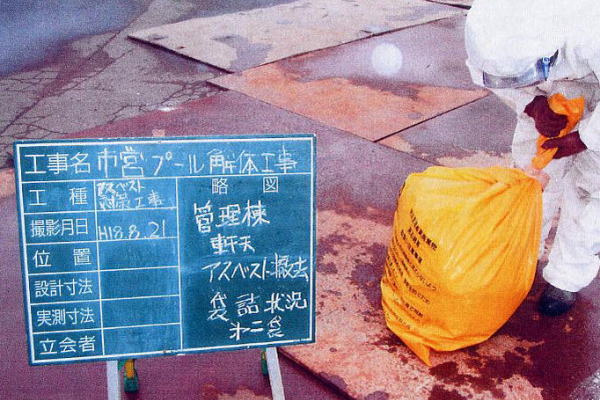 工事名 市営プール解体工事
工種 アスベスト
対策工事
略図
撮影月日 H18.8.21
位置
設計寸法
実測寸法
立会者
管理棟
軒天
アスベスト撤去
袋詰状況
オ二袋